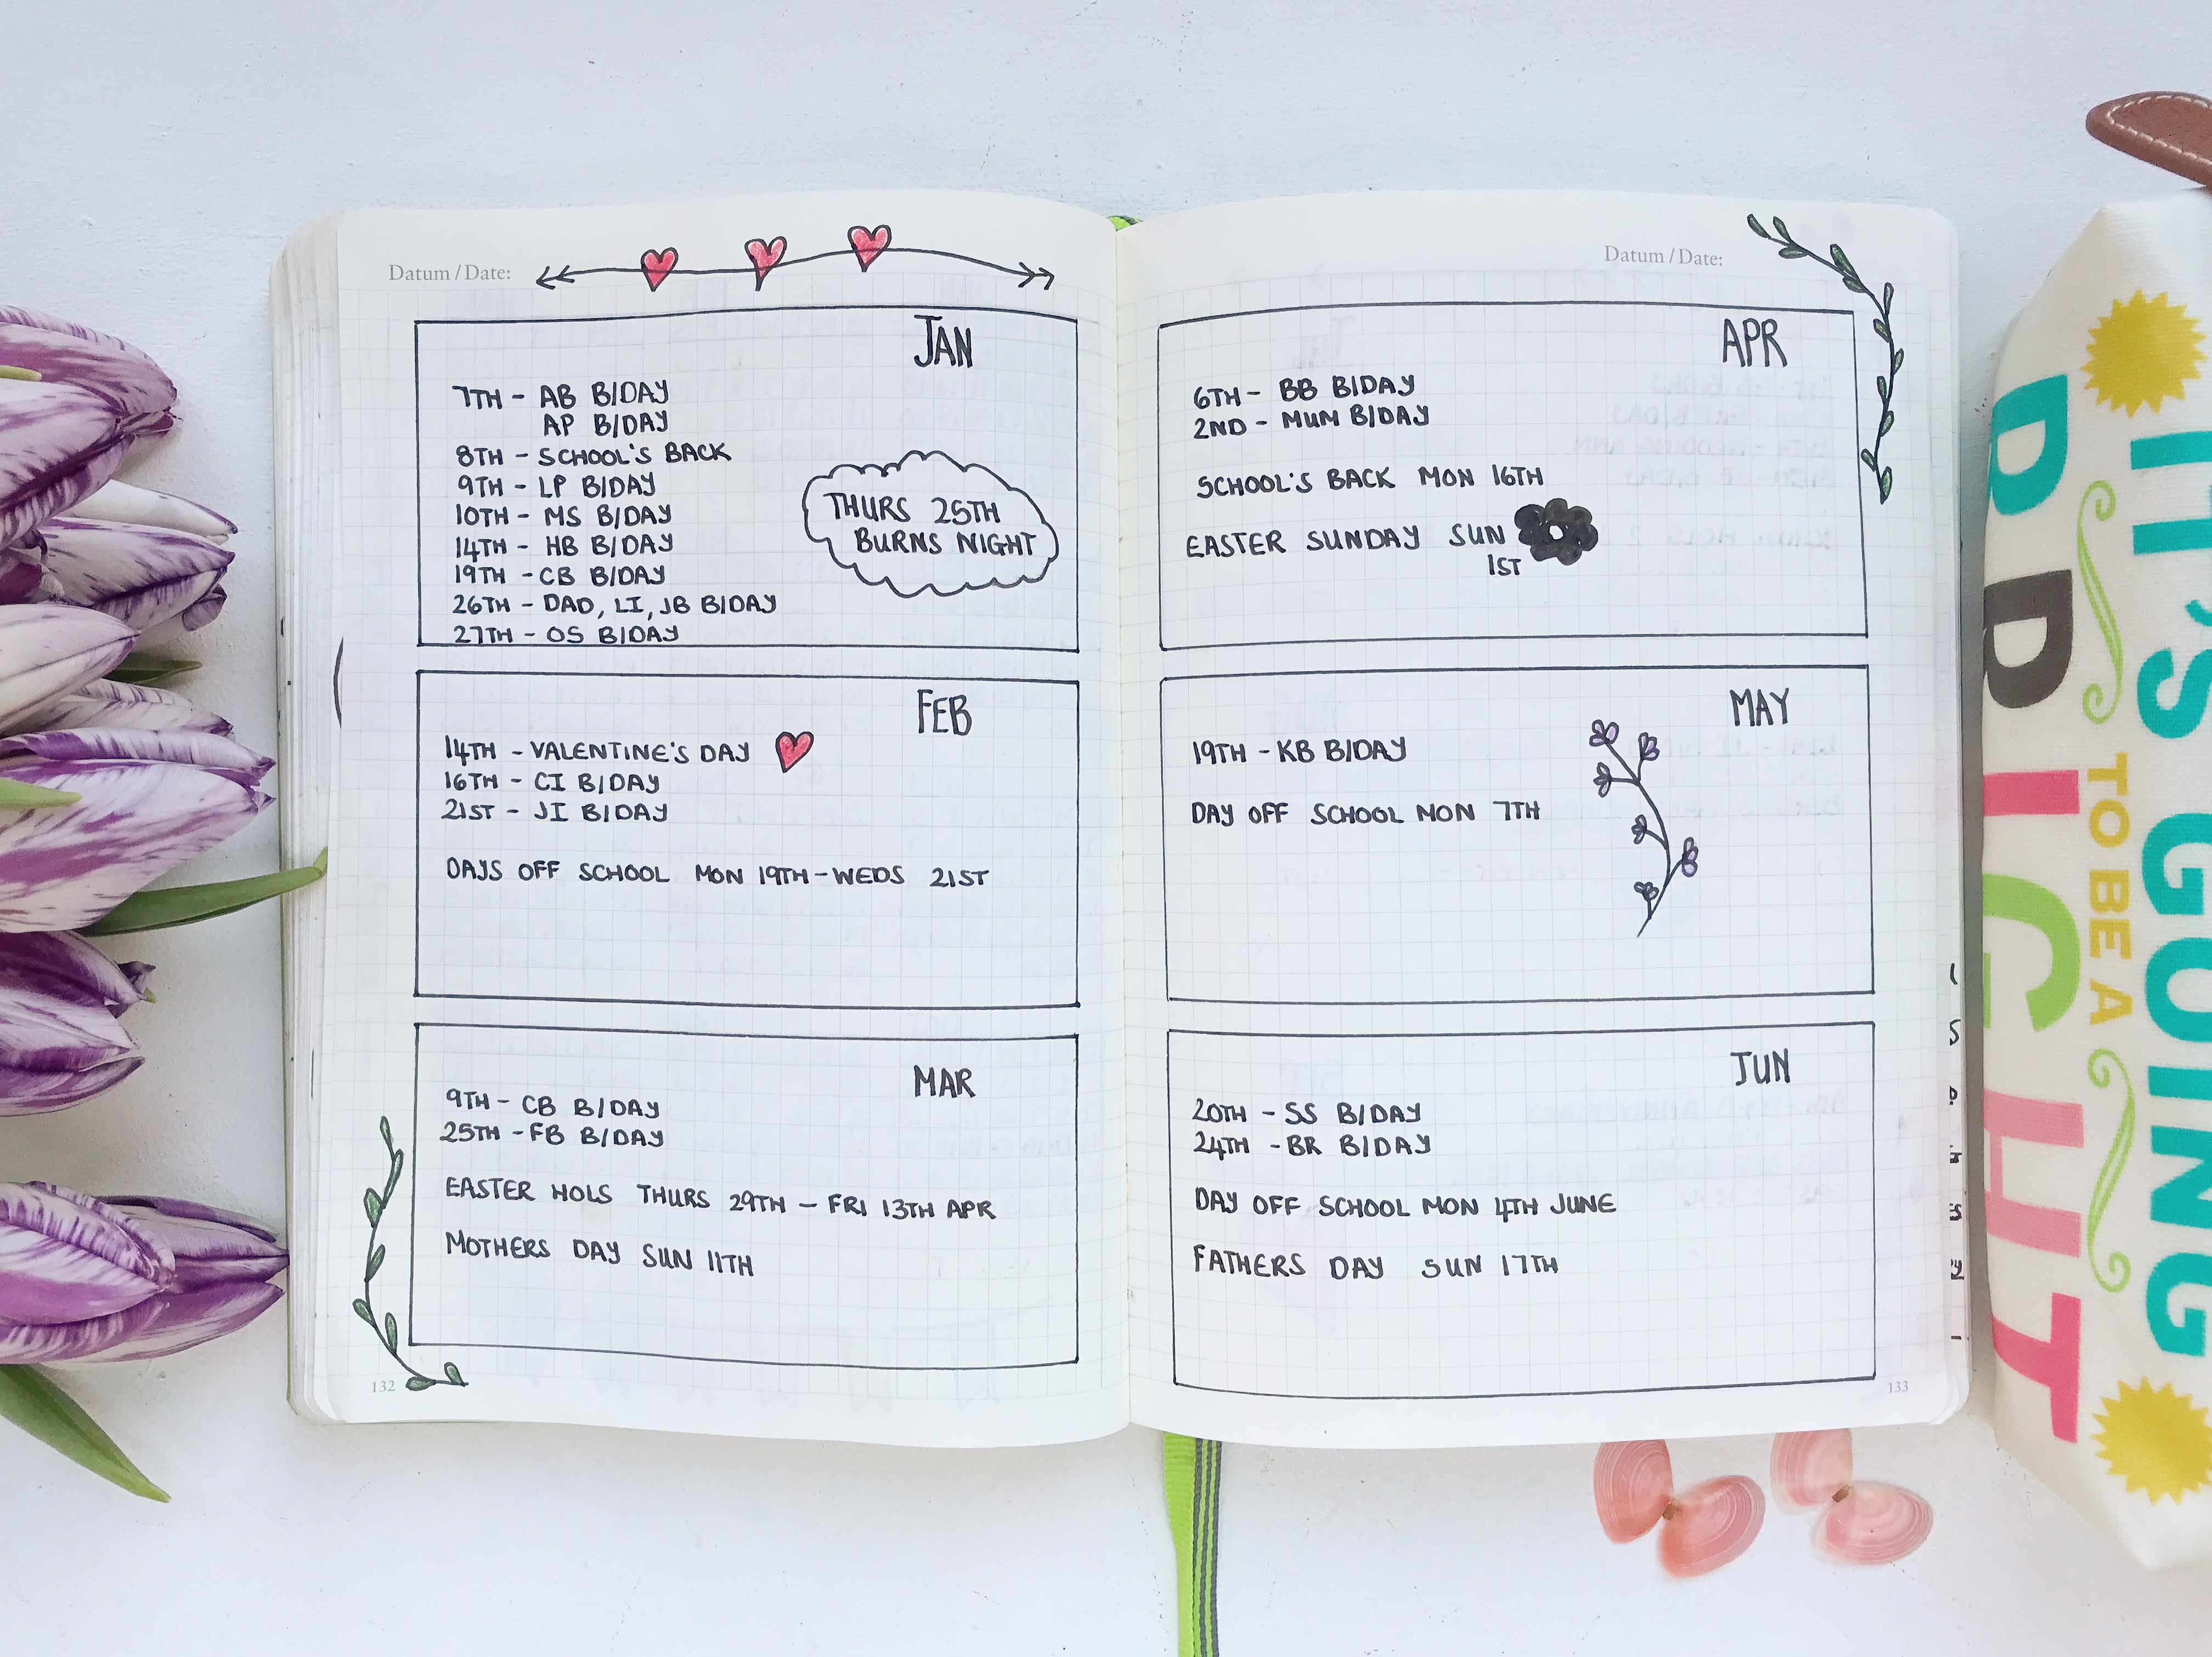 Datum / Date:
JAN
7TH - AB B/DAY
AP B/DAY
8TH - SCHOOL'S BACK
9TH - LP B/DAY
10TH - MS B/DAY
14TH - HB B/DAY
19TH - CB B/DAY
26TH - DAD, LI, JB B/DAY
27TH - OS B/DAY
THURS 25TH
BURNS NIGHT
FEB
14TH - VALENTINE'S DAY
16TH - CI B/DAY
21ST - JI B/DAY
DAYS OFF SCHOOL MON 19TH - WEDS 21ST
MAR
9TH - CB B/DAY
25TH - FB B/DAY
EASTER HOLS THURS 29TH - FRI 13TH APR
MOTHERS DAY SUN 11TH
132
Datum / Date:
APR
6TH - BB B/DAY
2ND - MUM B/DAY
SCHOOL'S BACK MON 16TH
EASTER SUNDAY SUN
1ST
MAY
19TH - KB B/DAY
DAY OFF SCHOOL MON 7TH
JUN
20TH - SS B/DAY
24TH - BR B/DAY
DAY OFF SCHOOL MON 4TH JUNE
FATHERS DAY SUN 17TH
133
IT'S GOING
TO BE A
BRIGHT